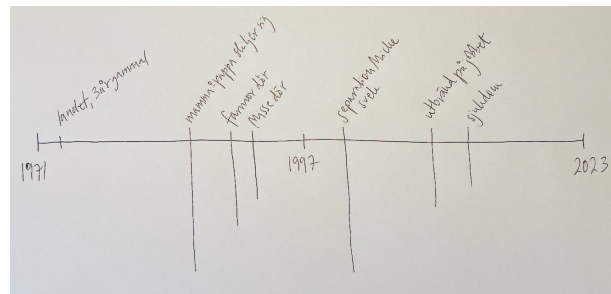 landet, 3 år gammal
mamma å pappa skiljer sig
farmor dör
Nisse dör
separation Micke
svek
utbränd på jobbet
sjukdom
1971
1997
2023